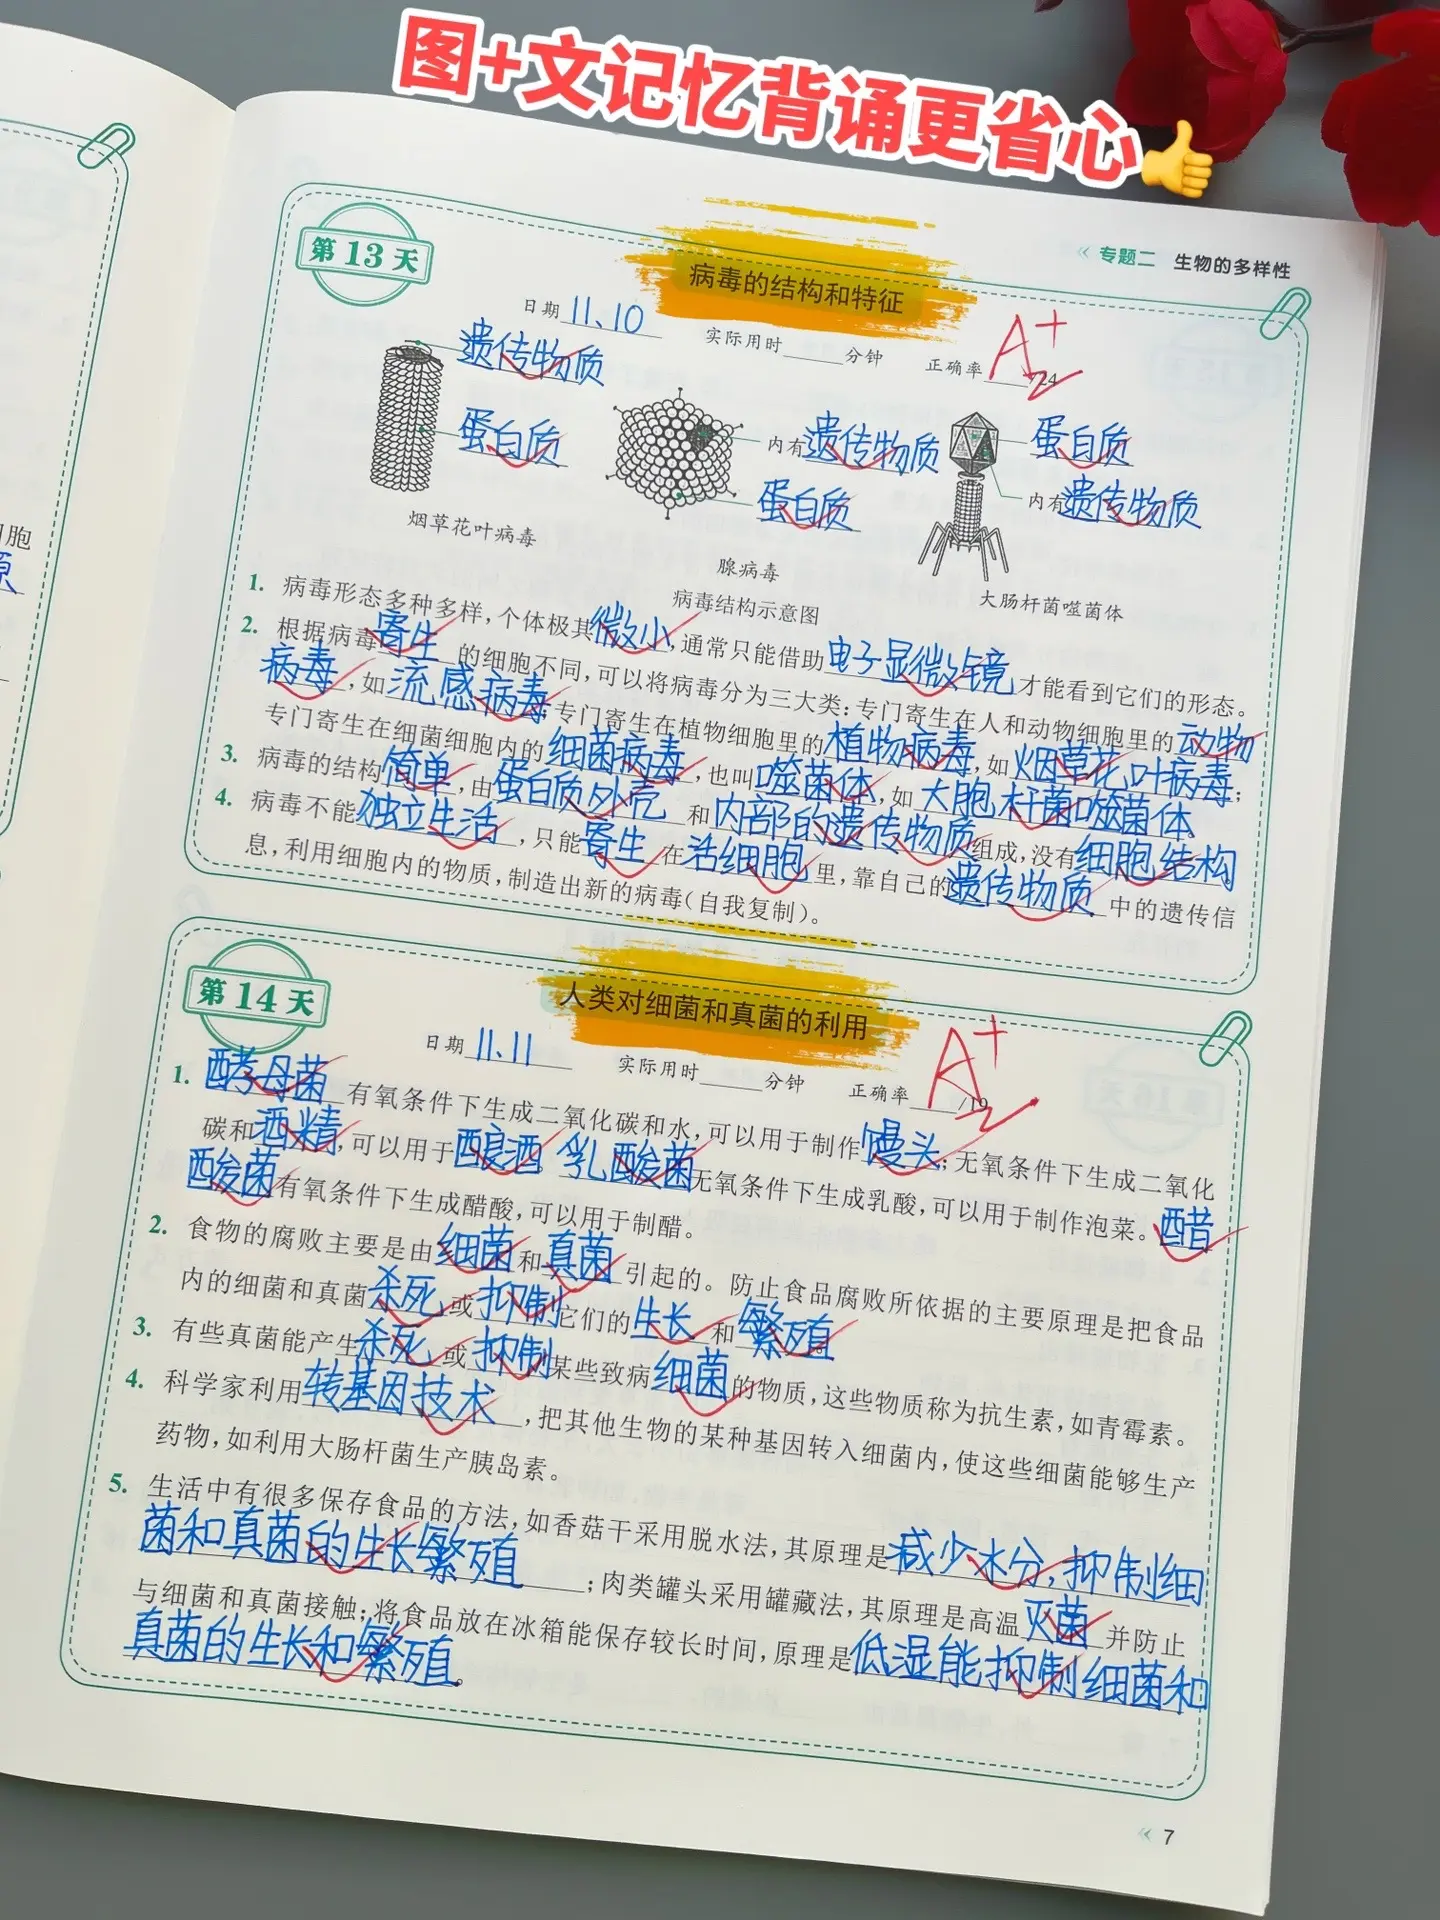 图+文记忆背诵更省心
专题二 生物的多样性
第13天
病毒的结构和特征
日期 11、10 实际用时 分钟 正确率 /24
A+
遗传物质
蛋白质
内有遗传物质
蛋白质
蛋白质
内有遗传物质
烟草花叶病毒
腺病毒
大肠杆菌噬菌体
病毒结构示意图
1. 病毒形态多种多样,个体极其微小,通常只能借助电子显微镜才能看到它们的形态。
2. 根据病毒寄生的细胞不同,可以将病毒分为三大类:专门寄生在人和动物细胞里的动物
病毒,如流感病毒;专门寄生在植物细胞里的植物病毒,如烟草花叶病毒;
专门寄生在细菌细胞内的细菌病毒,也叫噬菌体,如大胞杆菌噬菌体
3. 病毒的结构简单,由蛋白质外壳和内部的遗传物质组成,没有细胞结构。
4. 病毒不能独立生活,只能寄生在活细胞里,靠自己的遗传物质中的遗传信
息,利用细胞内的物质,制造出新的病毒(自我复制)。
第14天
人类对细菌和真菌的利用
日期 11、11 实际用时 分钟 正确率 /19
A+
1. 酵母菌有氧条件下生成二氧化碳和水,可以用于制作馒头;无氧条件下生成二氧化
碳和酒精,可以用于酿酒。乳酸菌无氧条件下生成乳酸,可以用于制作泡菜。醋
酸菌有氧条件下生成醋酸,可以用于制醋。
2. 食物的腐败主要是由细菌和真菌引起的。防止食品腐败所依据的主要原理是把食品
内的细菌和真菌杀死或抑制它们的生长和繁殖。
3. 有些真菌能产生杀死或抑制某些致病细菌的物质,这些物质称为抗生素,如青霉素。
4. 科学家利用转基因技术,把其他生物的某种基因转入细菌内,使这些细菌能够生产
药物,如利用大肠杆菌生产胰岛素。
5. 生活中有很多保存食品的方法,如香菇干采用脱水法,其原理是减少水分,抑制细
菌和真菌的生长繁殖;肉类罐头采用罐藏法,其原理是高温灭菌并防止
与细菌和真菌接触;将食品放在冰箱能保存较长时间,原理是低湿能抑制细菌和
真菌的生长和繁殖。
7